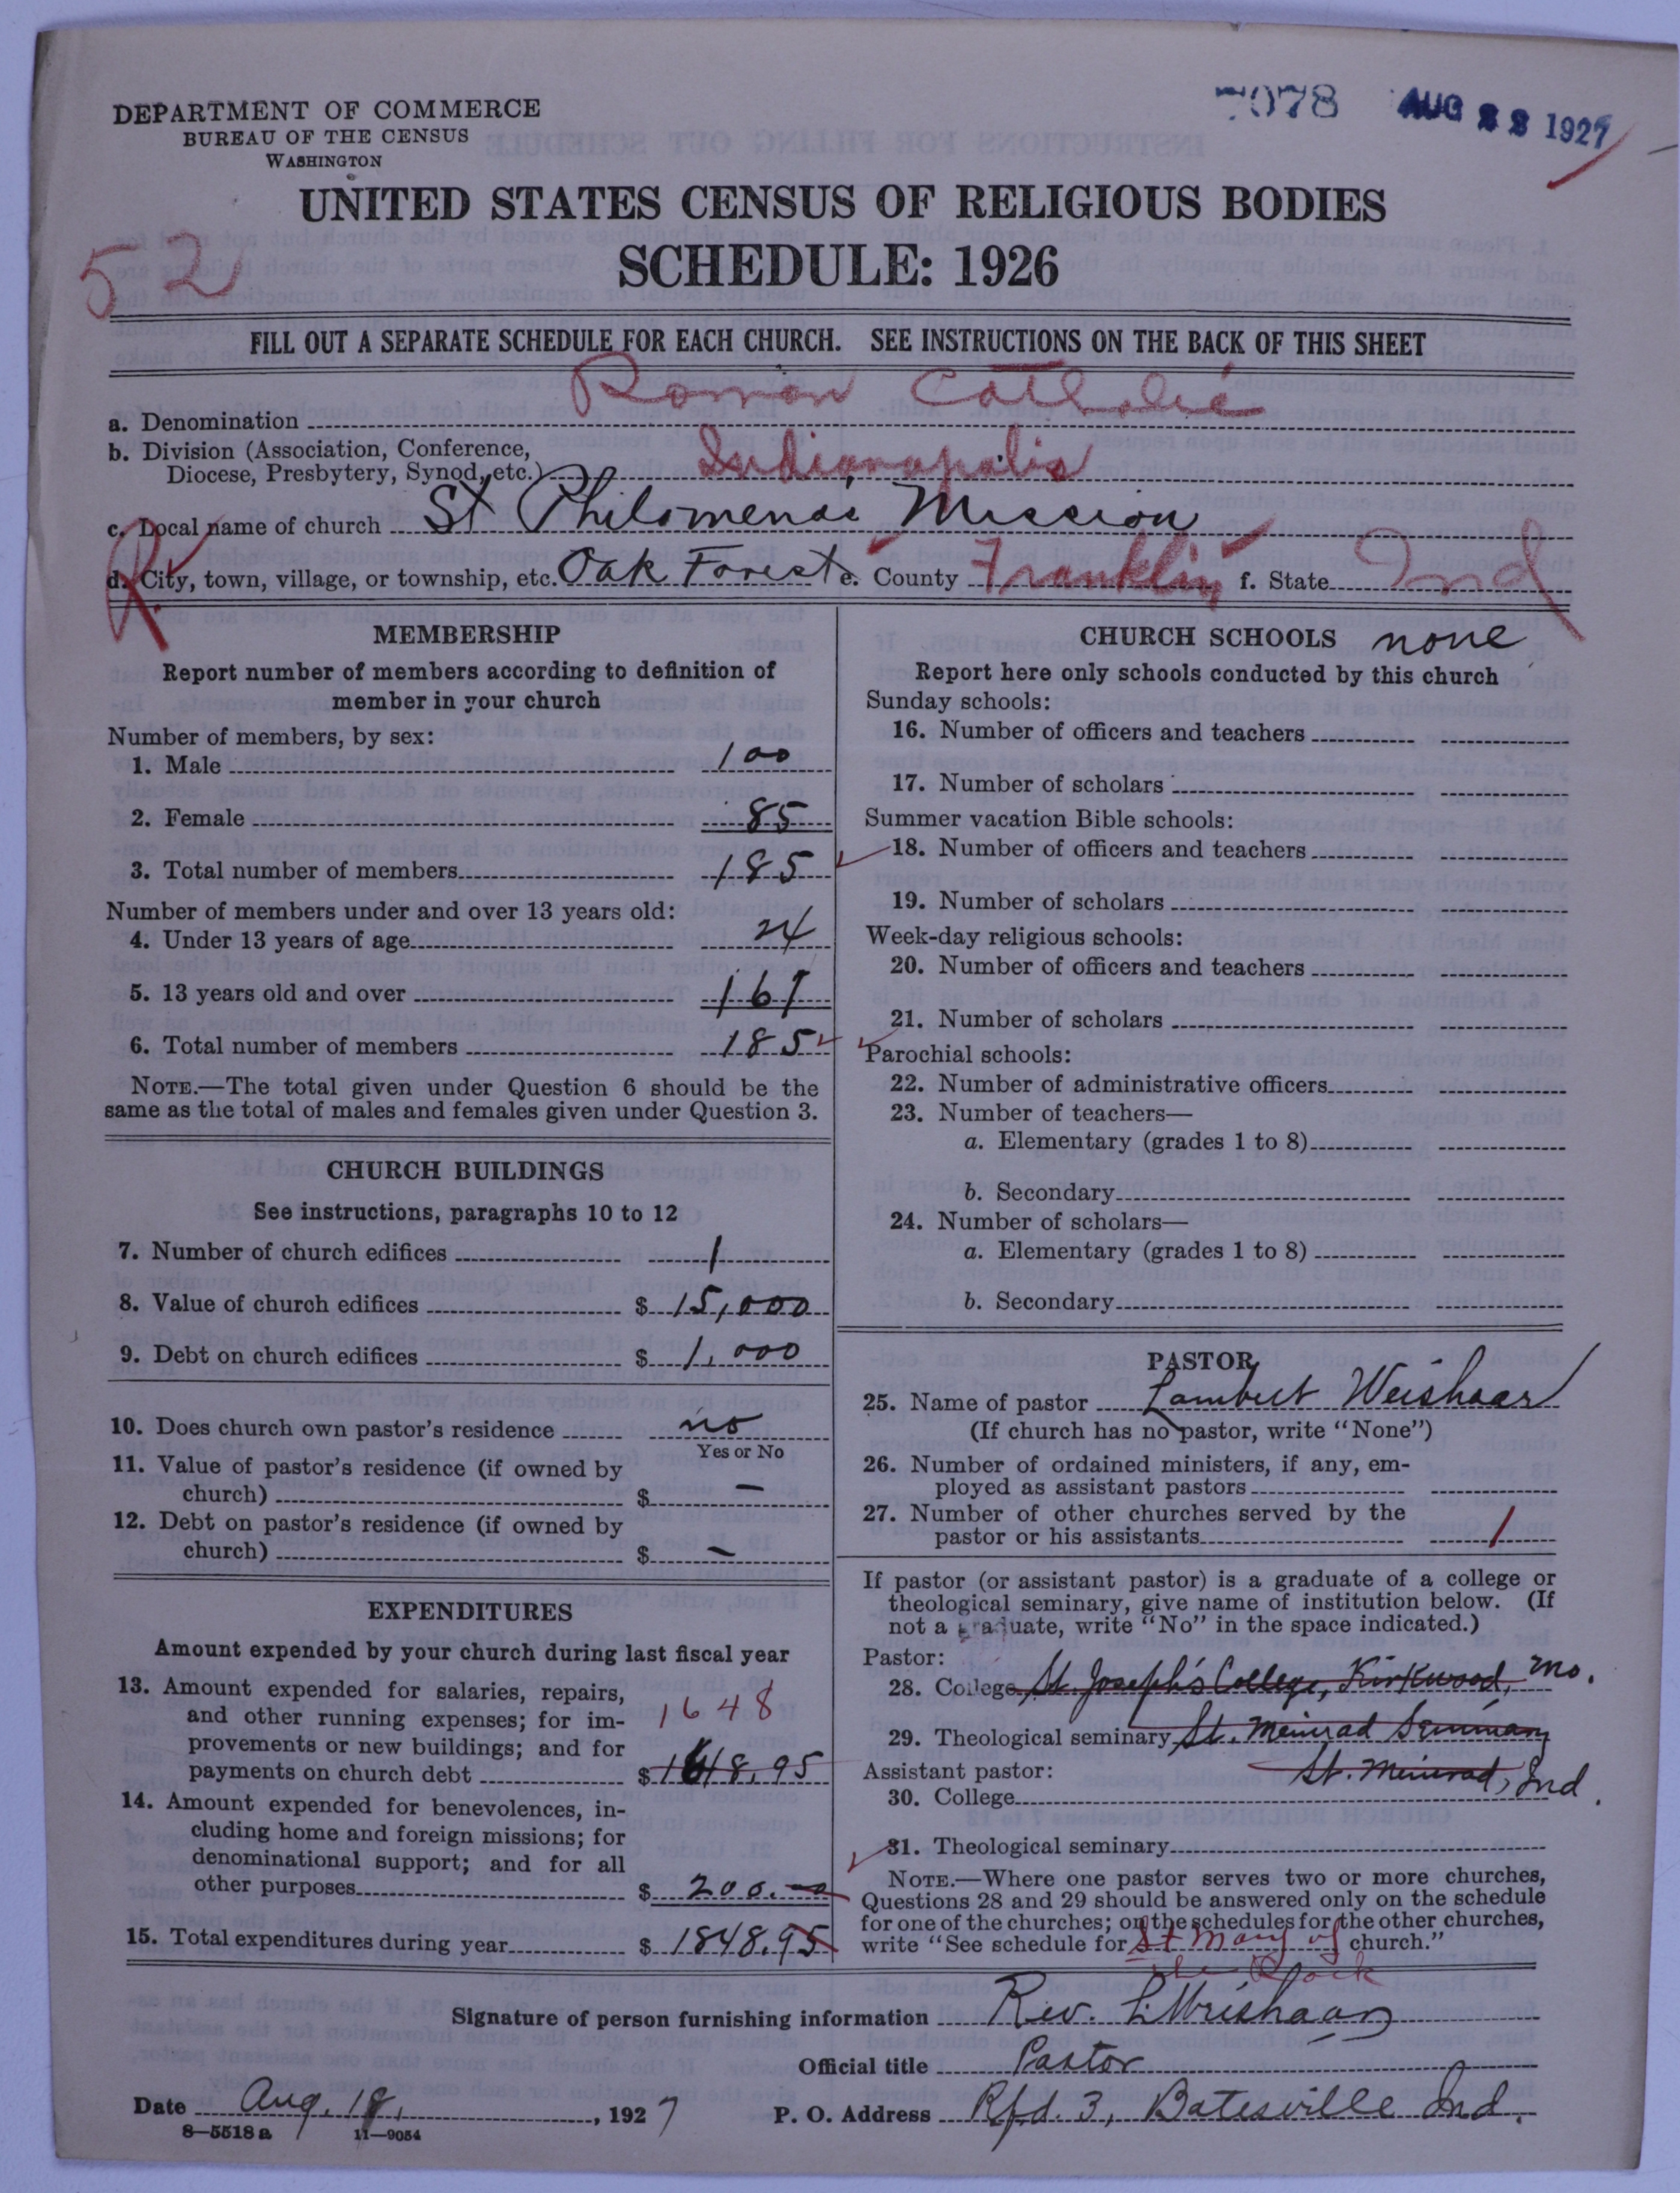 DEPARTMENT OF COMMERCE
BUREAU OF THE CENSUS
WASHINGTON
7078 AUG 22 1927
UNITED STATES CENSUS OF RELIGIOUS BODIES
SCHEDULE: 1926
52
FILL OUT A SEPARATE SCHEDULE FOR EACH CHURCH. SEE INSTRUCTIONS ON THE BACK OF THIS SHEET
a. Denomination Roman Catholic
b. Division (Association, Conference,
Diocese, Presbytery, Synod, etc.) Indianapolis
c. Local name of church St Philomena's Mission
R
d. City, town, village, or township, etc. Oak Forest e. County Franklin f. State Ind
MEMBERSHIP
Report number of members according to definition of
member in your church
Number of members, by sex:
1. Male 100
2. Female 85
3. Total number of members 185
Number of members under and over 13 years old:
4. Under 13 years of age 24
5. 13 years old and over 161
6. Total number of members 185
NOTE.—The total given under Question 6 should be the
same as the total of males and females given under Question 3.
CHURCH BUILDINGS
See instructions, paragraphs 10 to 12
7. Number of church edifices 1
8. Value of church edifices $ 15,000
9. Debt on church edifices $ 1,000
10. Does church own pastor's residence no
Yes or No
11. Value of pastor's residence (if owned by
church) $ —
12. Debt on pastor's residence (if owned by
church) $ —
EXPENDITURES
Amount expended by your church during last fiscal year
13. Amount expended for salaries, repairs,
and other running expenses; for im- 1648
provements or new buildings; and for
payments on church debt $ 1648.95
14. Amount expended for benevolences, in-
cluding home and foreign missions; for
denominational support; and for all
other purposes $ 200.—
15. Total expenditures during year $ 1848.95
CHURCH SCHOOLS none
Report here only schools conducted by this church
Sunday schools:
16. Number of officers and teachers
17. Number of scholars
Summer vacation Bible schools:
18. Number of officers and teachers
19. Number of scholars
Week-day religious schools:
20. Number of officers and teachers
21. Number of scholars
Parochial schools:
22. Number of administrative officers
23. Number of teachers—
a. Elementary (grades 1 to 8)
b. Secondary
24. Number of scholars—
a. Elementary (grades 1 to 8)
b. Secondary
PASTOR
25. Name of pastor Lambert Weishaar
(If church has no pastor, write "None")
26. Number of ordained ministers, if any, em-
ployed as assistant pastors
27. Number of other churches served by the
pastor or his assistants 1
If pastor (or assistant pastor) is a graduate of a college or
theological seminary, give name of institution below. (If
not a graduate, write "No" in the space indicated.)
Pastor:
28. College St. Joseph's College, Kirkwood, Mo.
29. Theological seminary St. Meinrad Seminary
Assistant pastor: St. Meinrad, Ind.
30. College
31. Theological seminary
NOTE.—Where one pastor serves two or more churches,
Questions 28 and 29 should be answered only on the schedule
for one of the churches; on the schedules for the other churches,
write "See schedule for St Mary of church."
the Rock
Signature of person furnishing information Rev. L. Weishaar
Official title Pastor
Date Aug. 18, 1927 P. O. Address Rfd. 3, Batesville Ind.
8—5518 a 11—9054